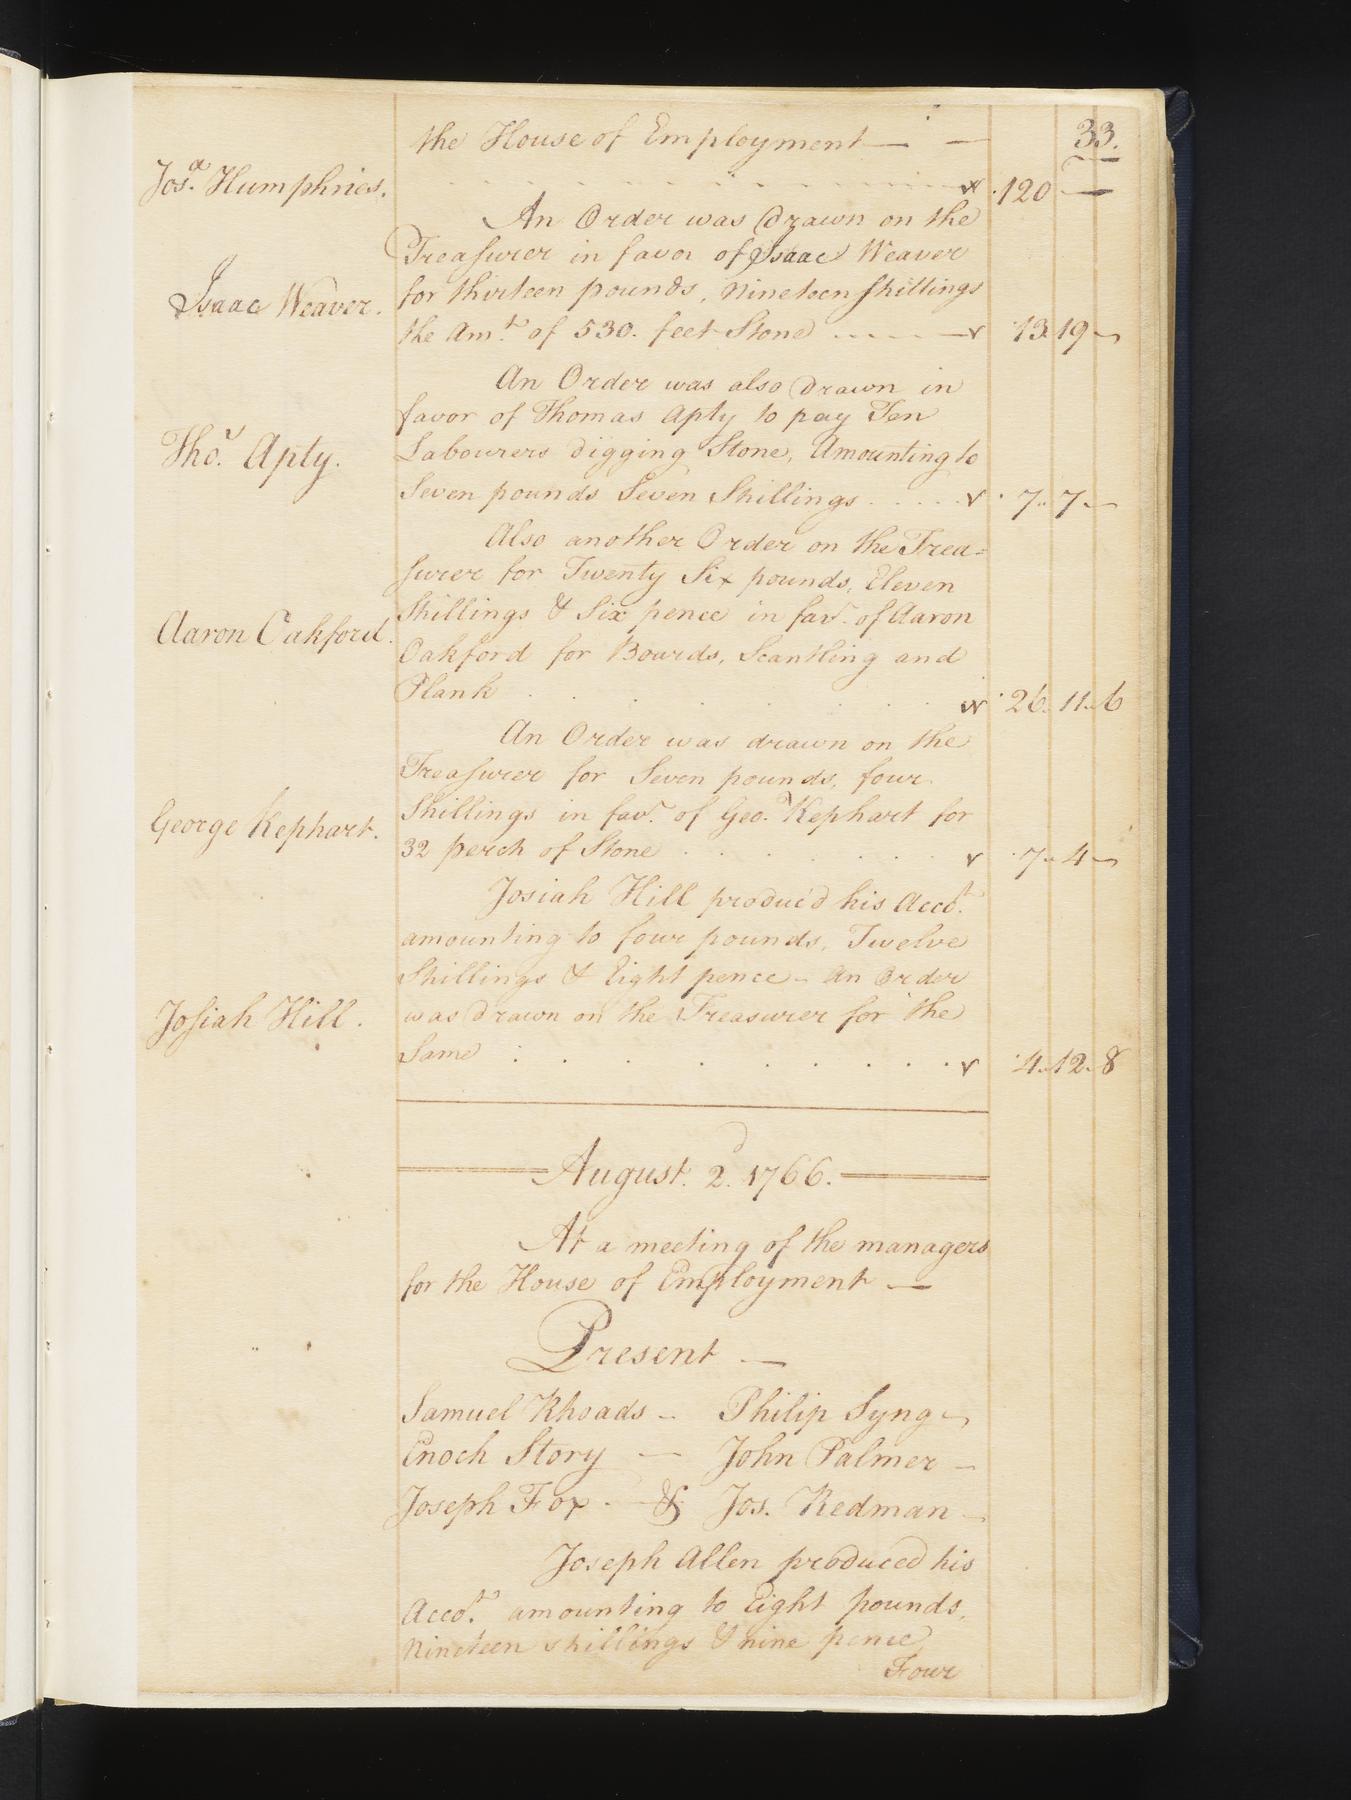 33.
the House of Employment — —
Josa. Humphries. 120 —
An Order was Drawn on the
Treasurer in favor of Isaac Weaver
Isaac Weaver. for thirteen pounds, Nineteen shillings
the Amt. of 530. feet Stone 13 19 —
An Order was also Drawn in
favor of Thomas Apty to pay Ten
Thos. Apty. Labourers digging Stone, Amounting to
Seven pounds Seven Shillings 7. 7. —
Also another Order on the Trea=
surer for Twenty Six pounds, Eleven
Shillings & Six pence in favr. of Aaron
Aaron Oakford. Oakford for Boards, Scantling and
Plank 26. 11. 6
An Order was drawn on the
Treasurer for Seven pounds, four
George Kephart. Shillings in favr. of Geo. Kephart for
32 perch of Stone 7. 4 —
Josiah Hill produc'd his Accot.
amounting to four pounds, Twelve
Shillings & Eight pence - An Order
Josiah Hill. was Drawn on the Treasurer for the
Same 4. 12. 8
August. 2d. 1766.
At a meeting of the managers
for the House of Employment —
Present —
Samuel Rhoads - Philip Syng -
Enoch Story — John Palmer -
Joseph Fox. & Jos. Redman -
Joseph Allen produced his
Accot. amounting to Eight pounds,
Nineteen shillings & nine pence
Four